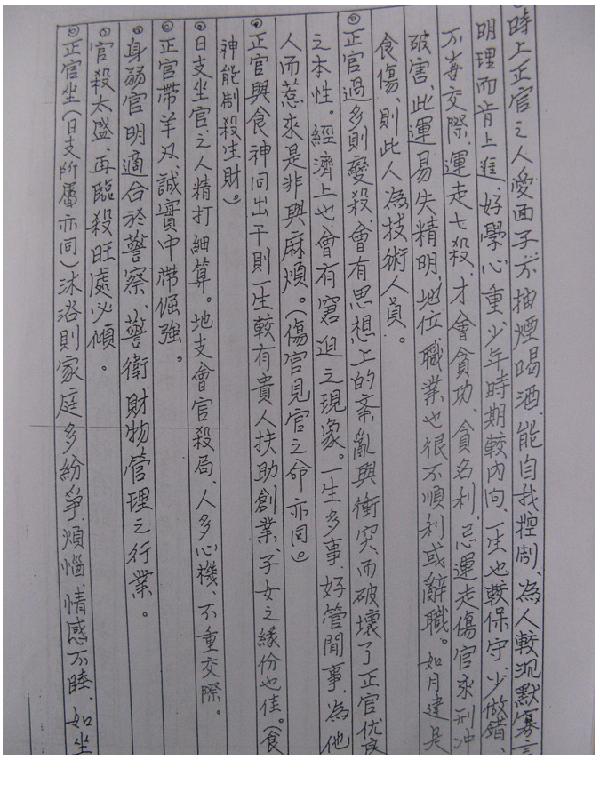 時上正官之人愛面子不抽煙喝酒、能自我控制、為人較沉默寡言
明理而肯上進、好學心重少年時期較內向、一生也較保守、少做錯、
不喜交際、運走七殺、才會貪功、貪名利、忌運走傷官來刑冲
破害、此運易失精明、地位職業也很不順利或辭職。如月建是
食傷、則此人為技術人員。
正官過多則變殺會有思想上的紊亂與衝突、而破壞了正官優良
之本性。經濟上也會有窘迫之現象。一生多事、好管閒事、為他
人而惹來是非與麻煩。(傷官見官之命亦同)
正官與食神同出干則一生較有貴人扶助創業、子女之緣份也佳。(食
神能制殺生財)
日支坐官之人精打細算。地支會官殺局、人多心機、不重交際。
正官帶羊刃、誠實中帶倔強。
身弱官明適合於警察、警衛財物管理之行業。
官殺太盛、再臨殺旺處必傾。
正官坐(日支所屬亦同)沐浴則家庭多紛爭、煩惱、情感不睦、如坐